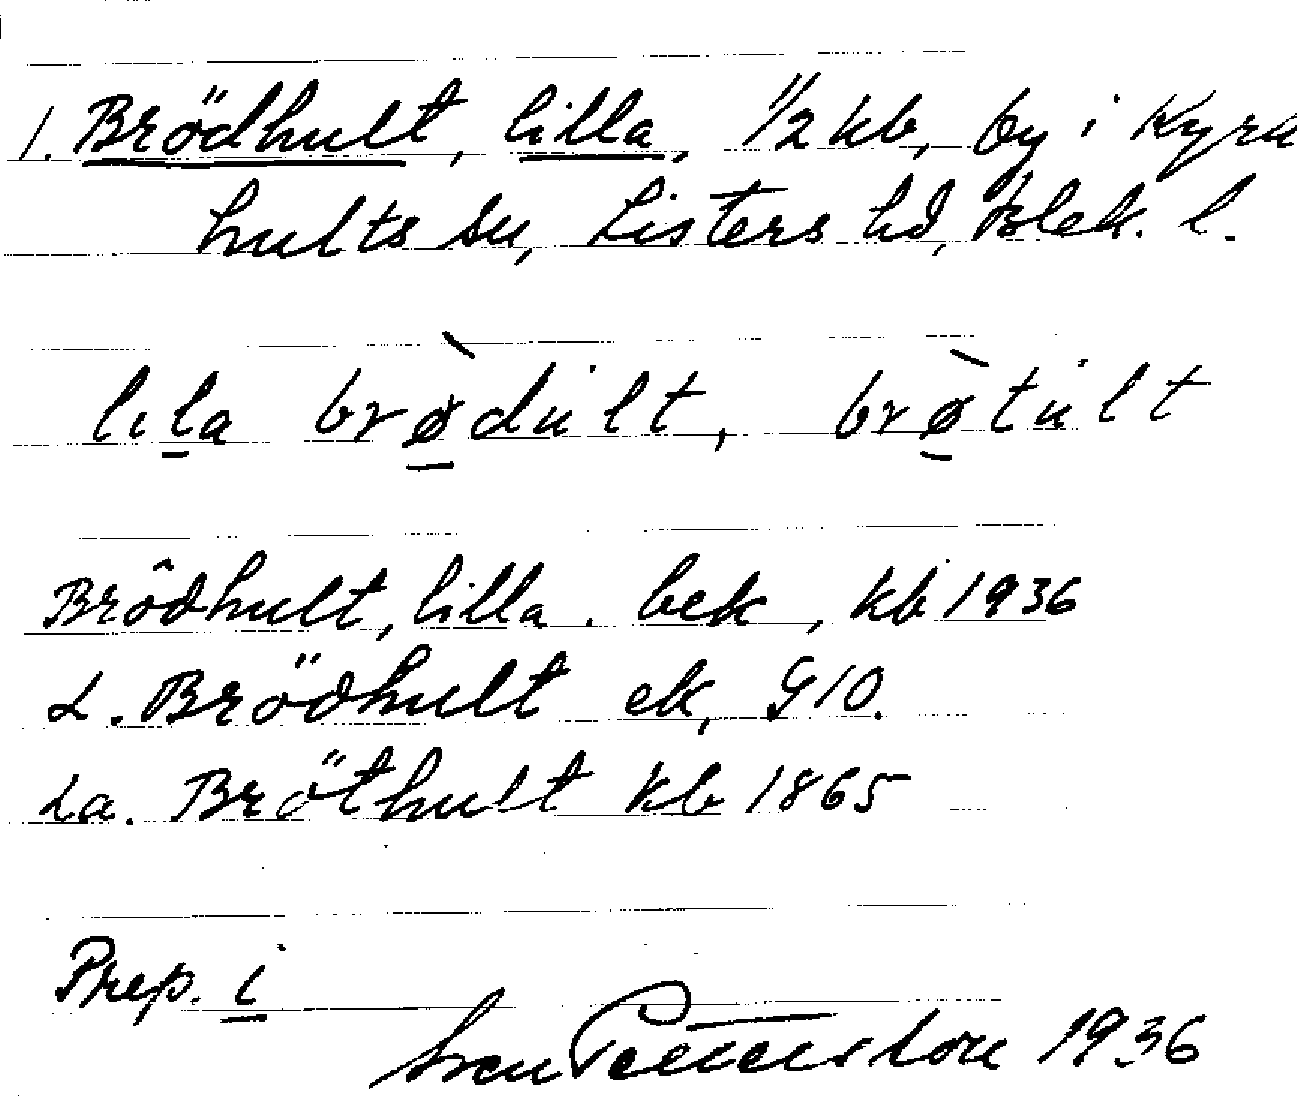 1. Brödhult, lilla, 1/2 kb, by i Kyrk
hults sn, Listers hd, Blek. l.
lila brødult, brøtult
Brödhult, lilla. bek, kb 1936
L. Brödhult ek, G10.
La. Bröthult kb 1865
Prep. i
Sven Pettersson 1936